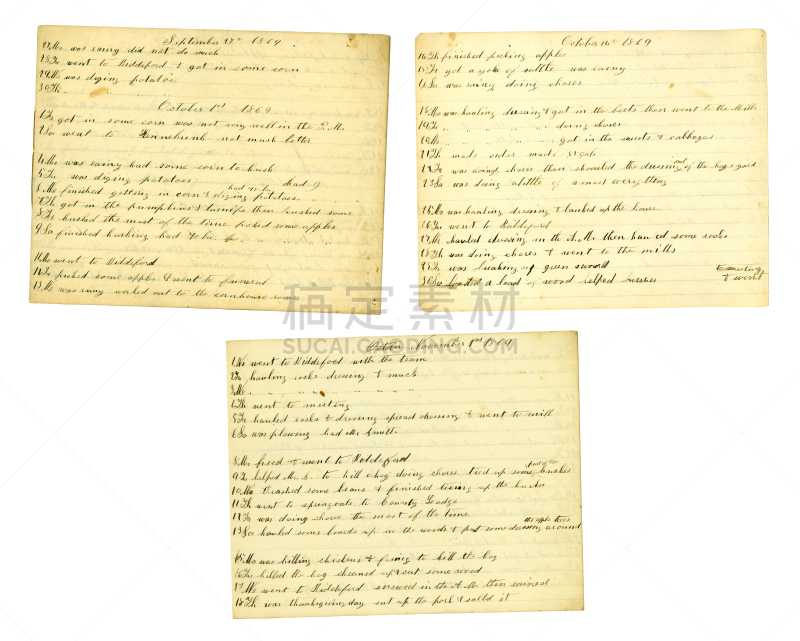 September 27th 1869
27 Mo was rainy did not do much
28 Tu went to Biddeford & got in some corn
29 We was diging potatoes
30 Th " " "
October 1st 1869
1 Fr got in some corn was not very well in the P. M.
2 Sa went to Kennebunk not much better
4 Mo was rainy had some corn to husk
5 Tu was diging potatoes
6 We finished getting in corn & diging potatoes
7 Th got in the pumpkins & turnips then husked some
8 Fr husked the most of the time picked some apples
9 Sa finished husking had
11 Mo went to Biddeford
12 Tu picked some apples & went to funeral
13 We was rainy worked out to the cornhouse some
October 14th 1869
14 Th finished picking apples
15 Fr got a yoke of cattle was rainy
16 Sa was rainy doing chores
18 Mo was hauling dressing & got in the beets then went to the Mills
19 Tu " " " " doing chores
20 We " " " got in the carrots & cabbages
21 Th made cider made
22 Fr was doing chores then shoveled the dressing out of the hogs yard
23 Sa was doing a little of a most everything
25 Mo was hauling dressing & banked up the house
26 Tu went to Biddeford
27 We hauled dressing in the A. M. then hauled some rocks
28 Th was doing chores & went to the mills
29 Fr was breaking up green sward
30 Sa loaded a load of wood helped
to meeting
& went
October November 1st 1869
1 Mo went to Biddeford with the team
2 Tu hauling rocks dressing & muck
3 We " " " " "
4 Th went to meeting
5 Fr hauled rocks & dressing spread dressing & went to mill
6 Sa was plowing had Mr Smith
8 Mo
went to Biddeford
9 Tu helped Mr. S. to kill a hog doing chores tied up some husks
10 We thrashed some beans & finished tieing up the husks
11 Th went to springvale to County Lodge
12 Fr was doing chores the most of the time
13 Sa hauled some boards up in the woods & put some dressing around the apple trees
15 Mo was killing chickens & fixing to kill the hog
16 Tu killed the hog cleaned up & cut some wood
17 We went to Biddeford snowed in the A. M. then rained
18 Th was thanksgiving day cut up the pork & salted it
搞定素材
SUCAI.GAODING.COM